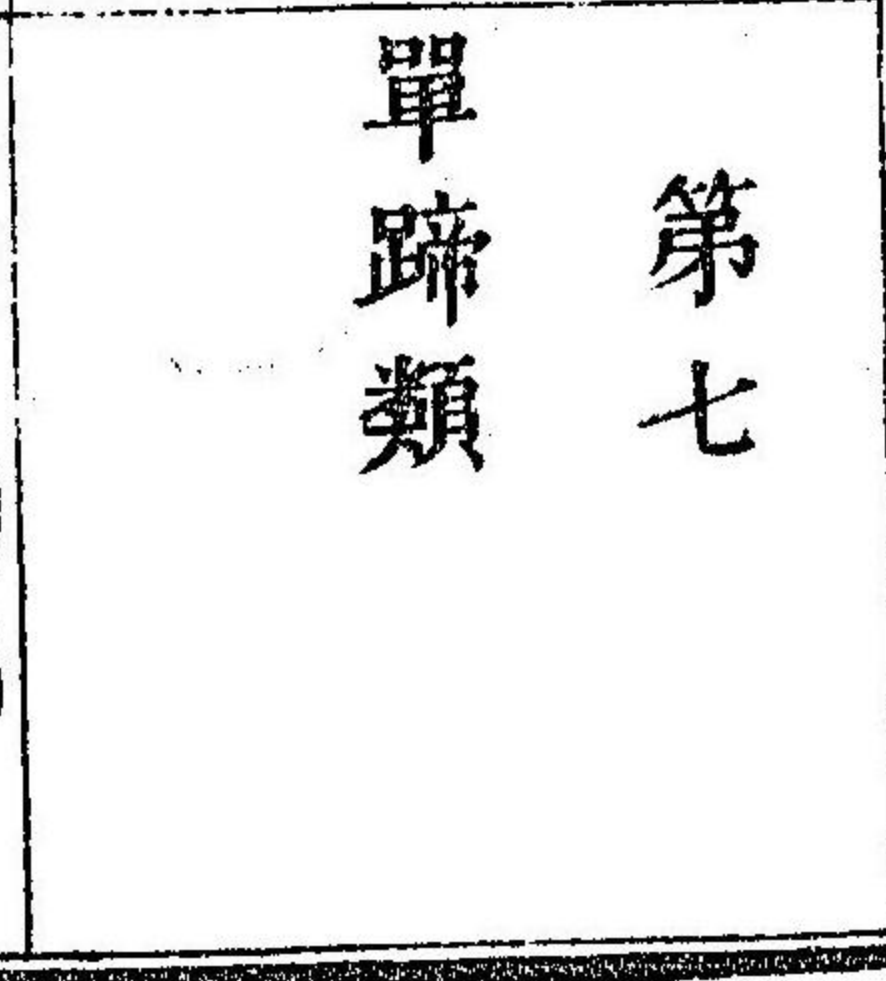 第七
單蹄類